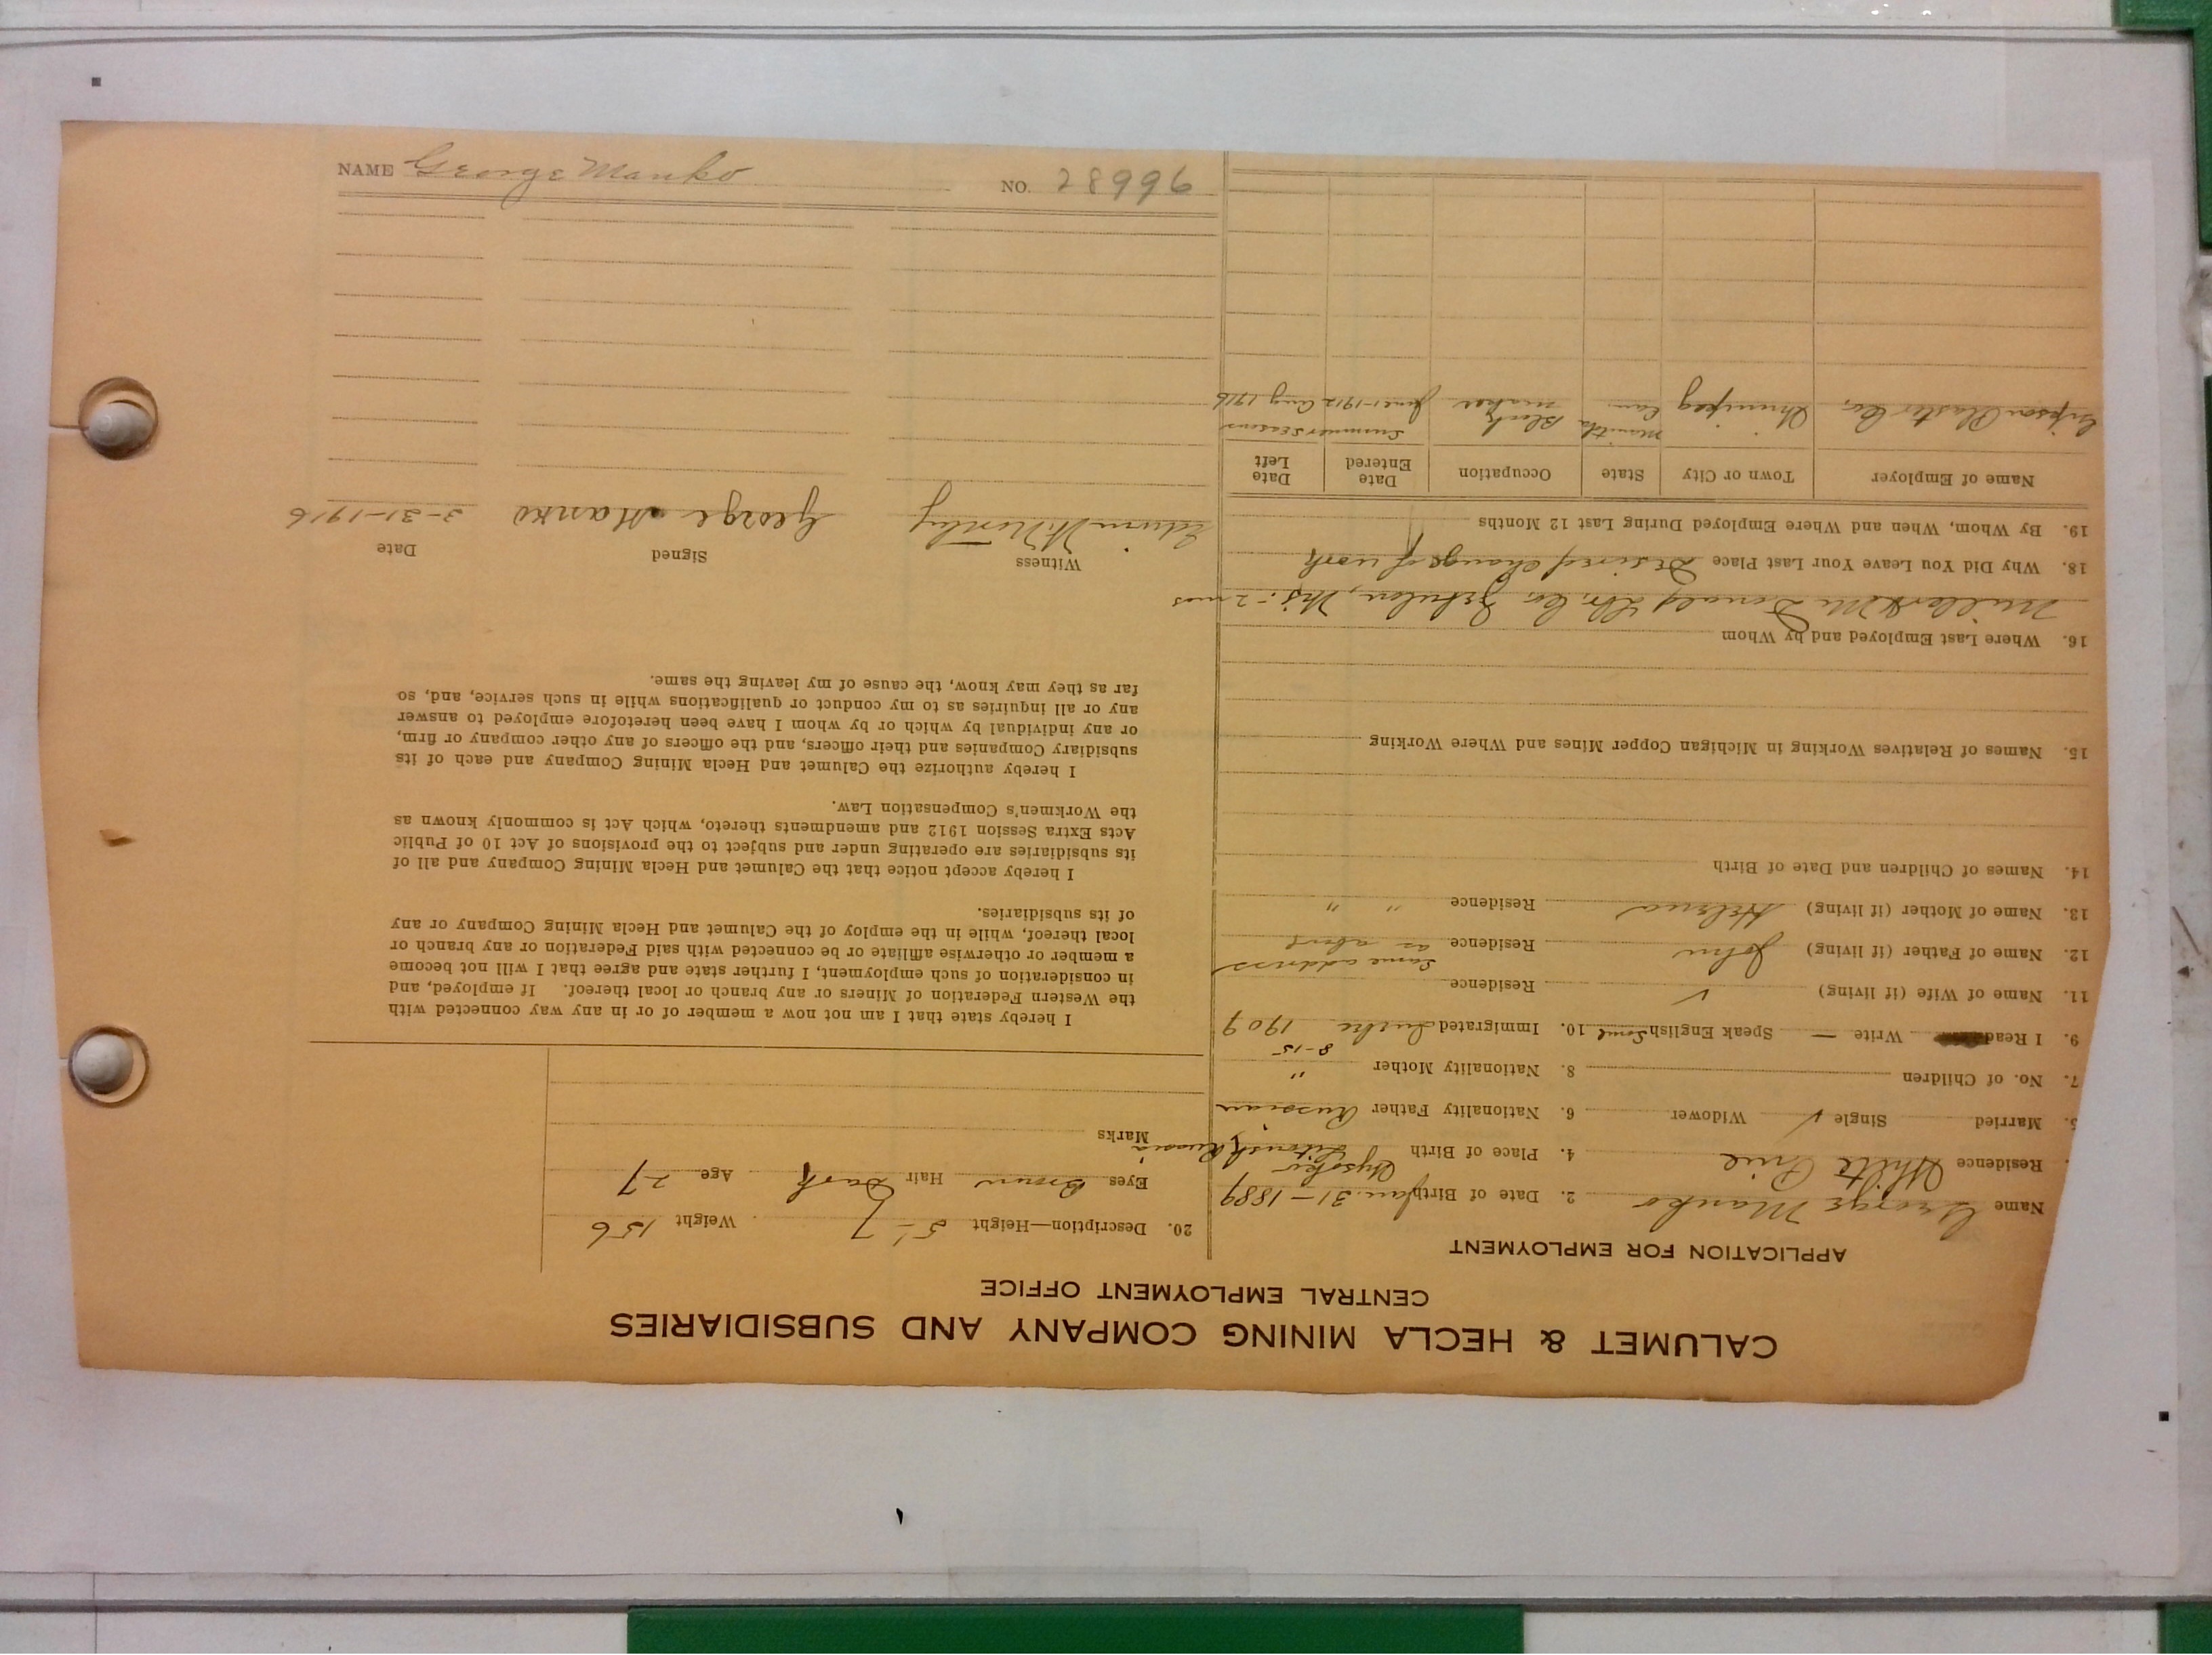 CALUMET & HECLA MINING COMPANY AND SUBSIDIARIES
CENTRAL EMPLOYMENT OFFICE
APPLICATION FOR EMPLOYMENT
Name George Manko 2. Date of Birth Jan. 31-1889
Residence White Pine 4. Place of Birth Russia
Married Single ✓ Widower 6. Nationality Father Russian
7. No. of Children 8. Nationality Mother "
8-15
9. I Read Write — Speak English Some 10. Immigrated 1909
11. Name of Wife (if living) ✓ Residence
same address
12. Name of Father (if living) John Residence as above
13. Name of Mother (if living) Residence " "
14. Names of Children and Date of Birth
15. Names of Relatives Working in Michigan Copper Mines and Where Working
16. Where Last Employed and by Whom
Co. 2 mos
18. Why Did You Leave Your Last Place Desired change of work
19. By Whom, When and Where Employed During Last 12 Months
Name of Employer Town or City State Occupation Date Entered Date Left
Manitba Block Summer Seasons
Gipson Plaster Co. Winnipeg Can. maker June 1-1912 Aug 1916
20. Description—Height 5-7 Weight 156
Eyes Brown Hair Dark Age 27
Marks
I hereby state that I am not now a member of or in any way connected with
the Western Federation of Miners or any branch or local thereof. If employed, and
in consideration of such employment, I further state and agree that I will not become
a member or otherwise affiliate or be connected with said Federation or any branch or
local thereof, while in the employ of the Calumet and Hecla Mining Company or any
of its subsidiaries.
I hereby accept notice that the Calumet and Hecla Mining Company and all of
its subsidiaries are operating under and subject to the provisions of Act 10 of Public
Acts Extra Session 1912 and amendments thereto, which Act is commonly known as
the Workmen's Compensation Law.
I hereby authorize the Calumet and Hecla Mining Company and each of its
subsidiary Companies and their officers, and the officers of any other company or firm,
or any individual by which or by whom I have been heretofore employed to answer
any or all inquiries as to my conduct or qualifications while in such service, and, so
far as they may know, the cause of my leaving the same.
Witness Signed Date
Edwin George Manko 3-31-1916
NAME George Manko NO. 28996